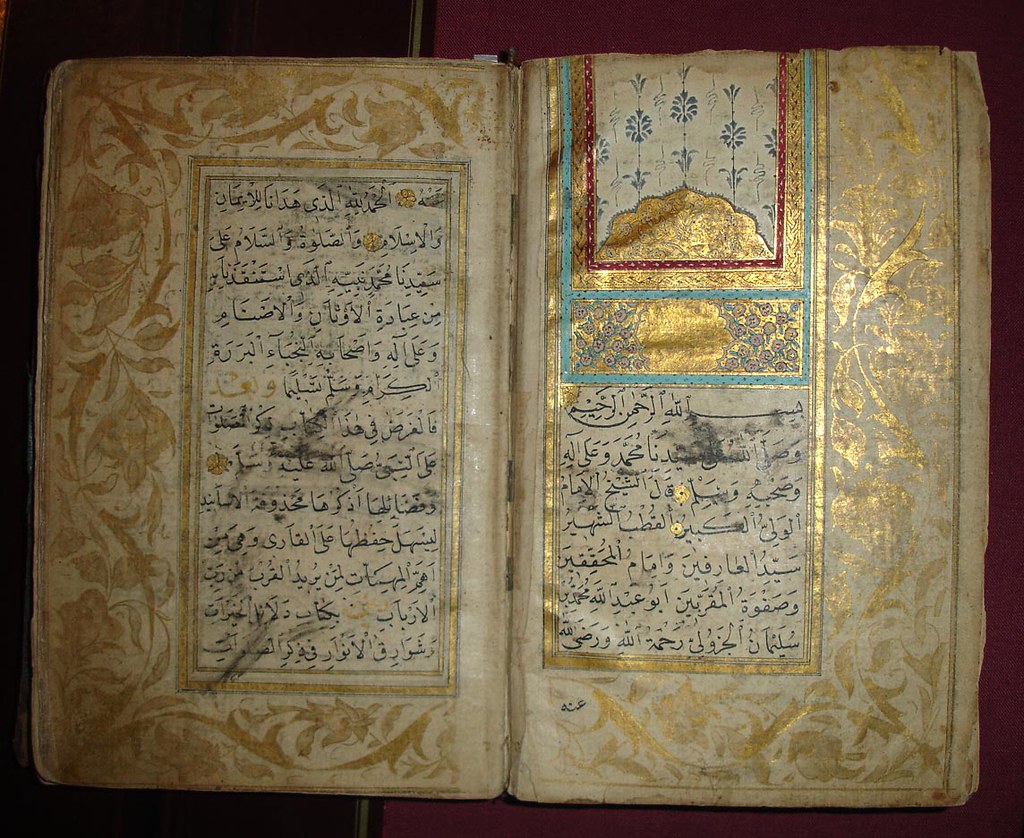 بسم الله الرحمن الرحيم
وصلى الله على سيدنا محمد وعلى آله
وصحبه وسلم قال الشيخ الإمام
الولي الكبير القطب الشهير
سيد العارفين وإمام المحققين
وصفوة المقربين أبو عبد الله محمد بن
سليمان الجزولي رحمة الله ورضي الله
عنه
عنه الحمد لله الذي هدانا للإيمان
والإسلام والصلوة والسلام على
سيدنا محمد نبيه الذي استنقذنا به
من عبادة الأوثان والأصنام
وعلى آله وأصحابه النجباء البررة
الكرام وسلم تسليما وبعد
فالغرض في هذا الكتاب ذكر الصلوات
على النبي صلى الله عليه وسلم
وفضائلها أذكرها محذوفة الأسانيد
ليسهل حفظها على القارئ وهي من
أهم المهمات لمن يريد القرب من رب
الأرباب بكتاب دلائل الخيرات
وشوارق الأنوار في ذكر الصلوات